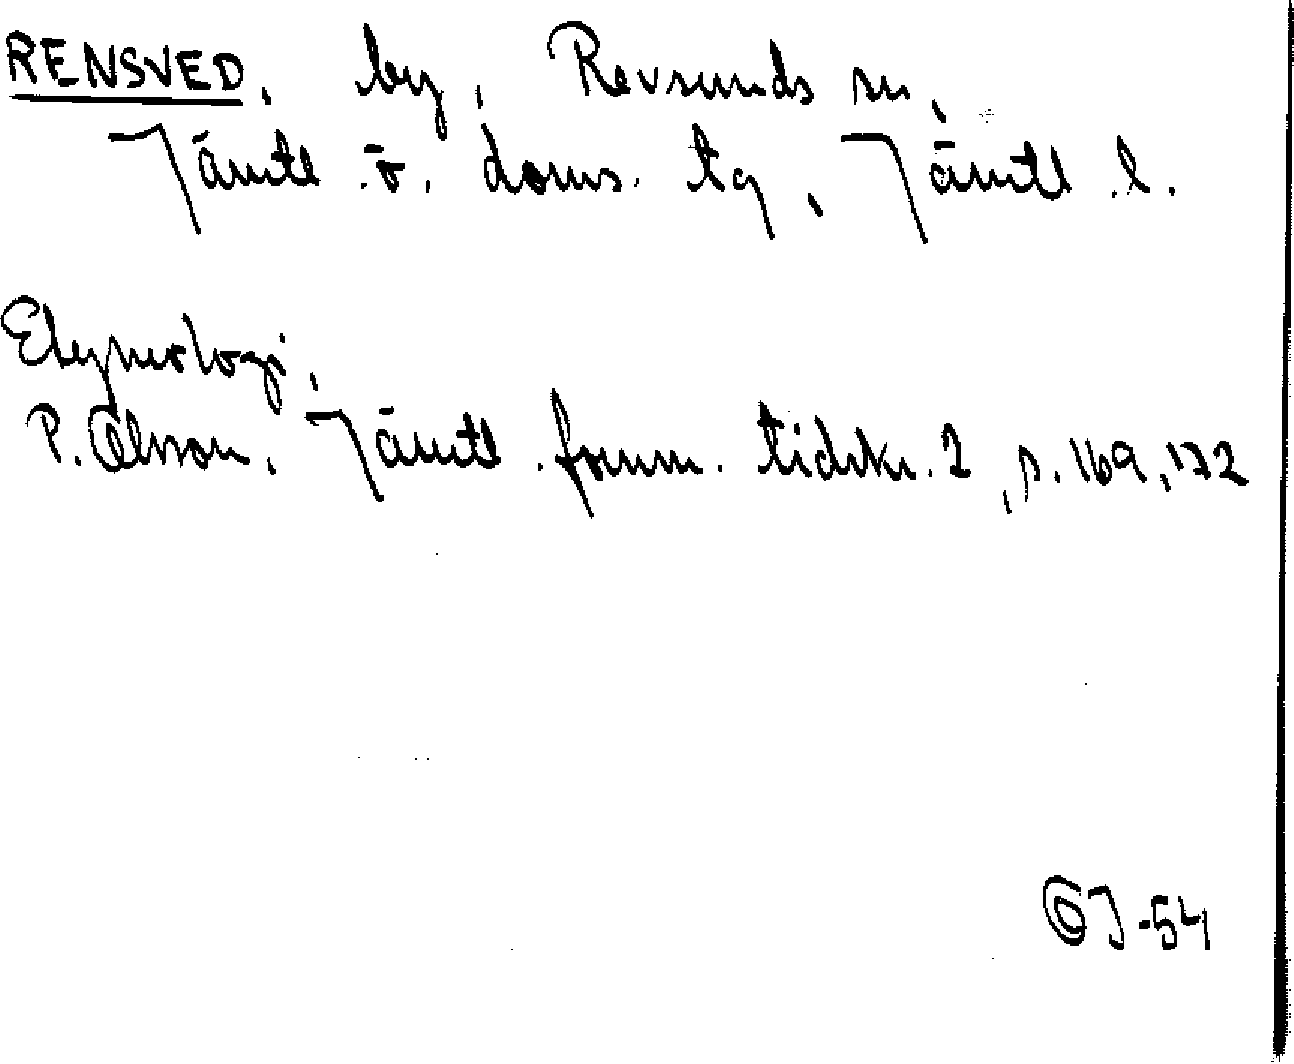 RENSVED, by, Revsunds sn,
Jämtl. ö. doms. tg, Jämtl. l.
Etymologi.
P. Olsson, Jämtl. fornm. tidskr. 2, s. 169, 172
OJ -54